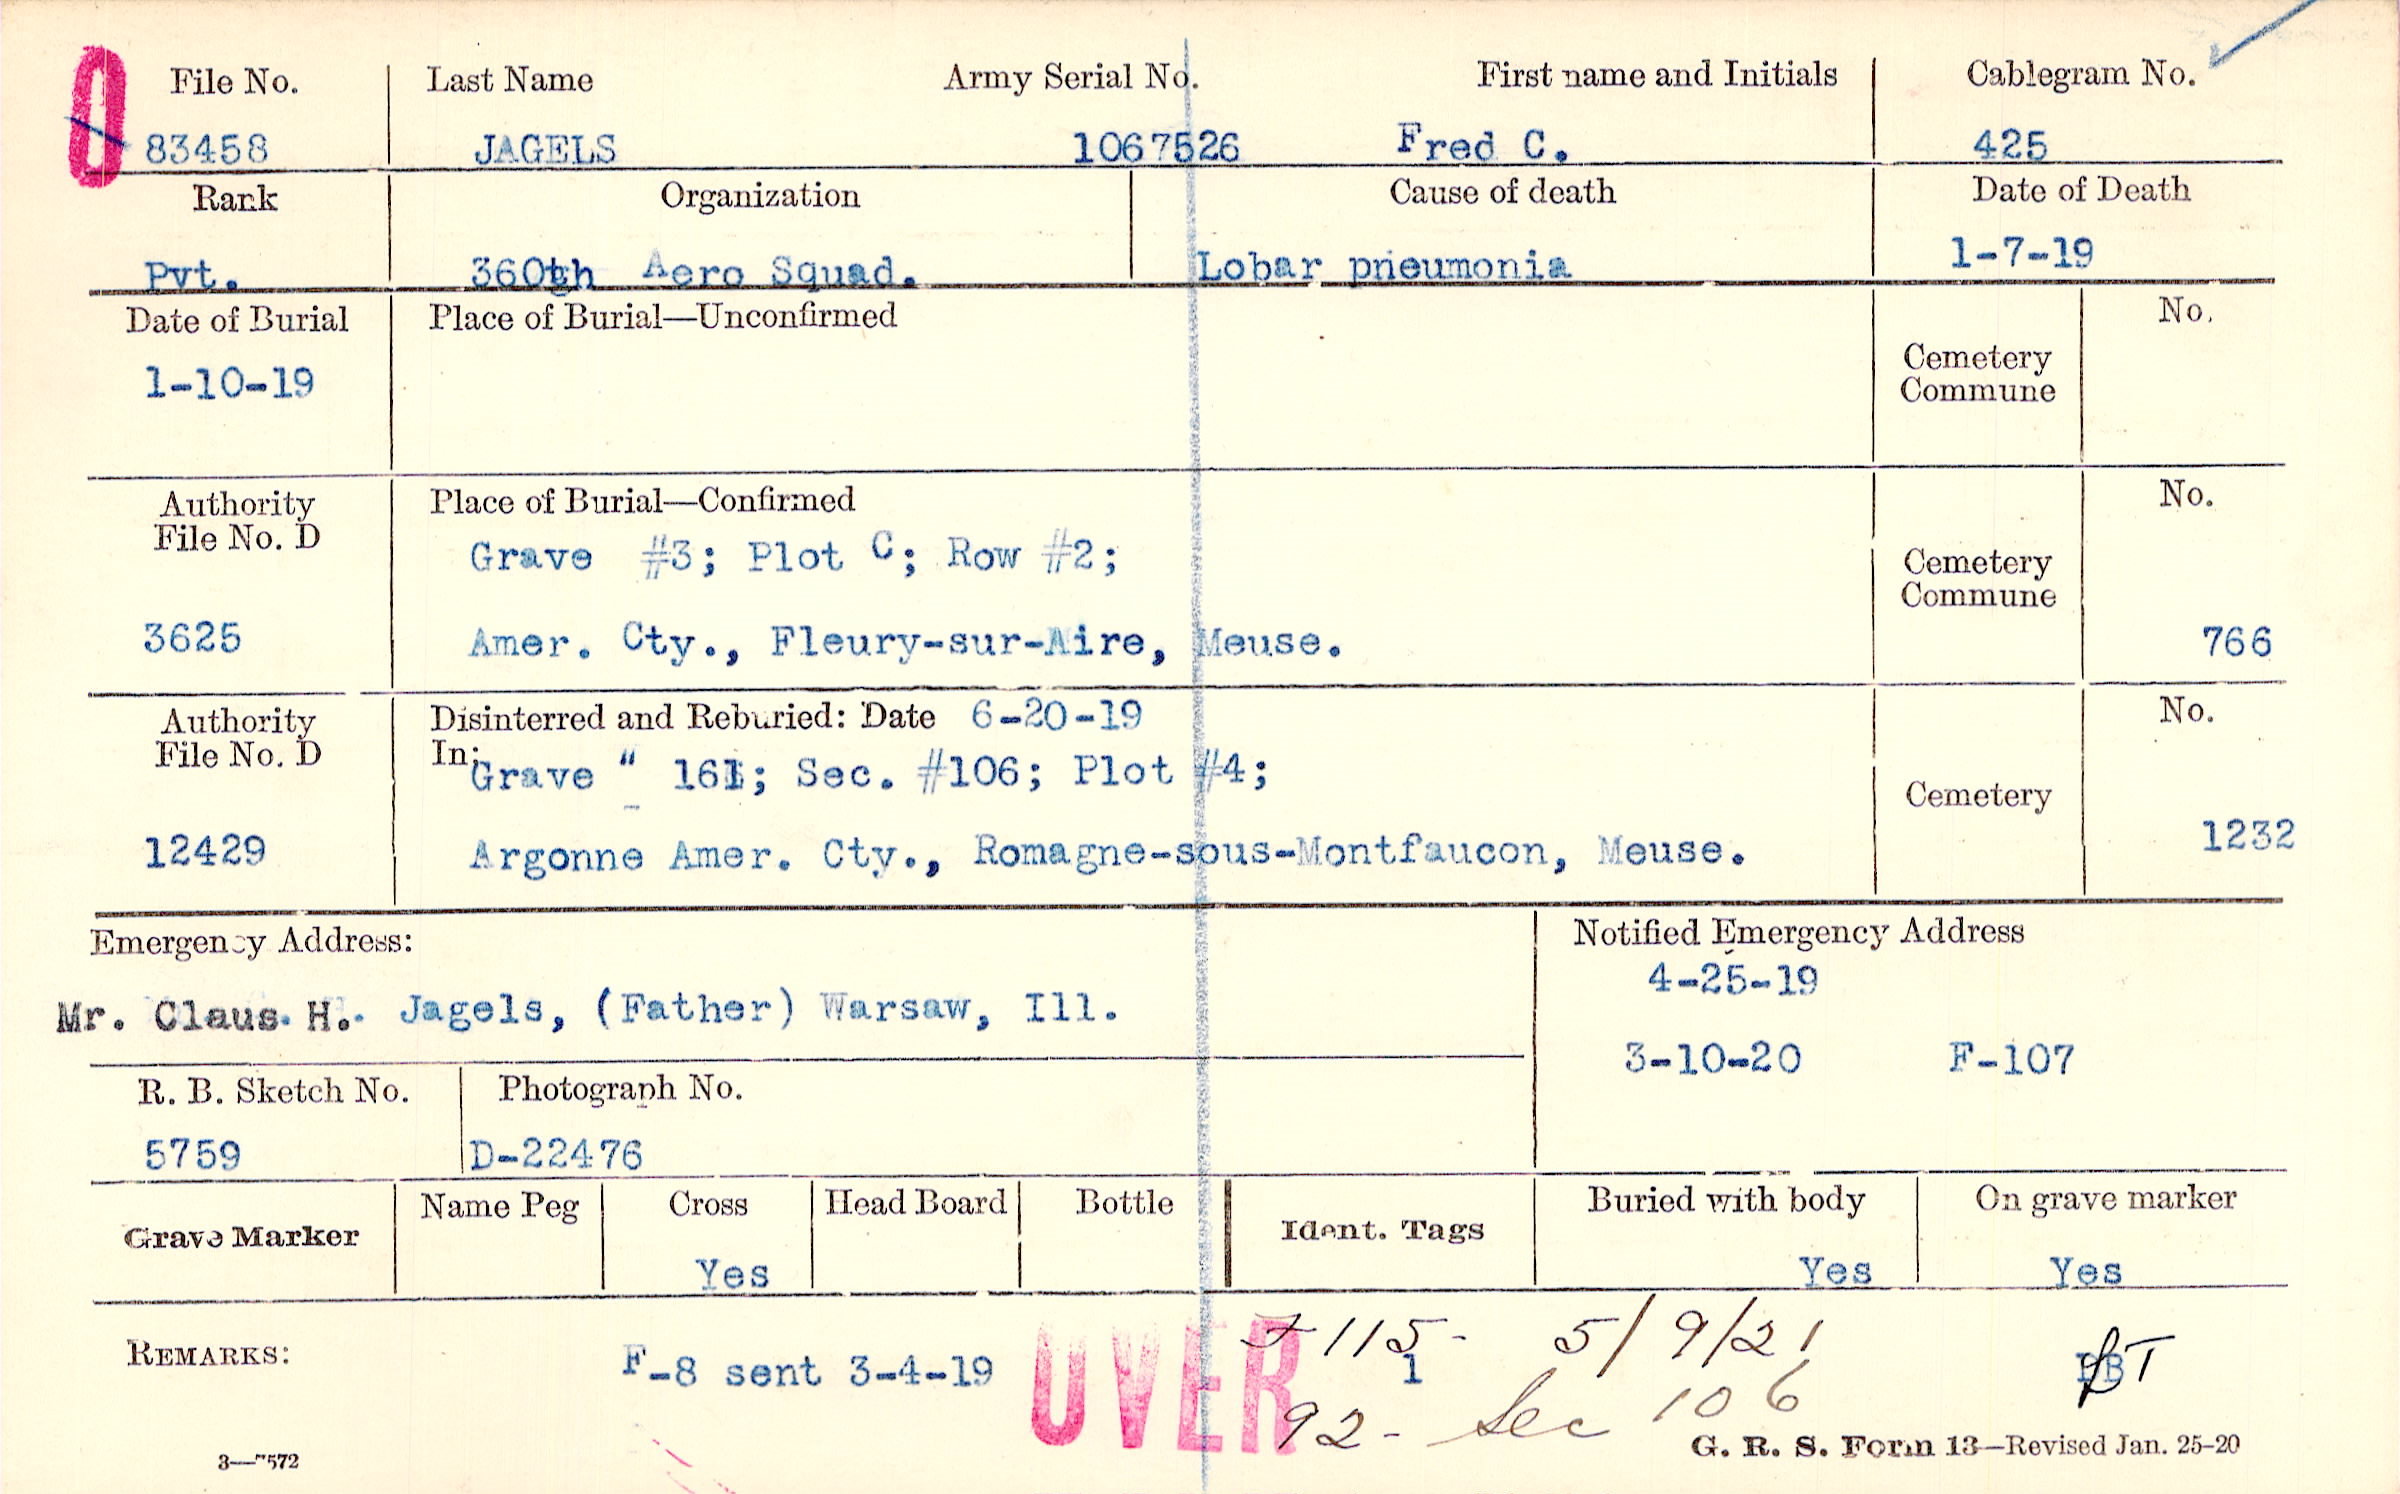 File No. Last Name Army Serial No. First name and Initials Cablegram No.
83458 JAGELS 1067526 Fred C. 425
Rank Organization Cause of death Date of Death
Pvt. 360th Aero Squad. Lobar pneumonia 1-7-19
Date of Burial Place of Burial—Unconfirmed No.
1-10-19 Cemetery
Commune
Authority Place of Burial—Confirmed No.
File No. D Grave #3; Plot C; Row #2; Cemetery
Commune
3625 Amer. Cty., Fleury-sur-Aire, Meuse. 766
Authority Disinterred and Reburied: Date 6-20-19 No.
File No. D In: Grave " 161; Sec. #106; Plot #4;
Cemetery
12429 Argonne Amer. Cty., Romagne-sous-Montfaucon, Meuse. 1232
Emergency Address: Notified Emergency Address
4-25-19
Mr. Claus H. Jagels, (Father) Warsaw, Ill.
3-10-20 F-107
R. B. Sketch No. Photograph No.
5759 D-22476
Grave Marker Name Peg Cross Head Board Bottle Ident. Tags Buried with body On grave marker
Yes Yes Yes
REMARKS: F-8 sent 3-4-19 OVER F 115- 5/9/21
1
92- Sec 106
3—7572 G. R. S. Form 13—Revised Jan. 25-20